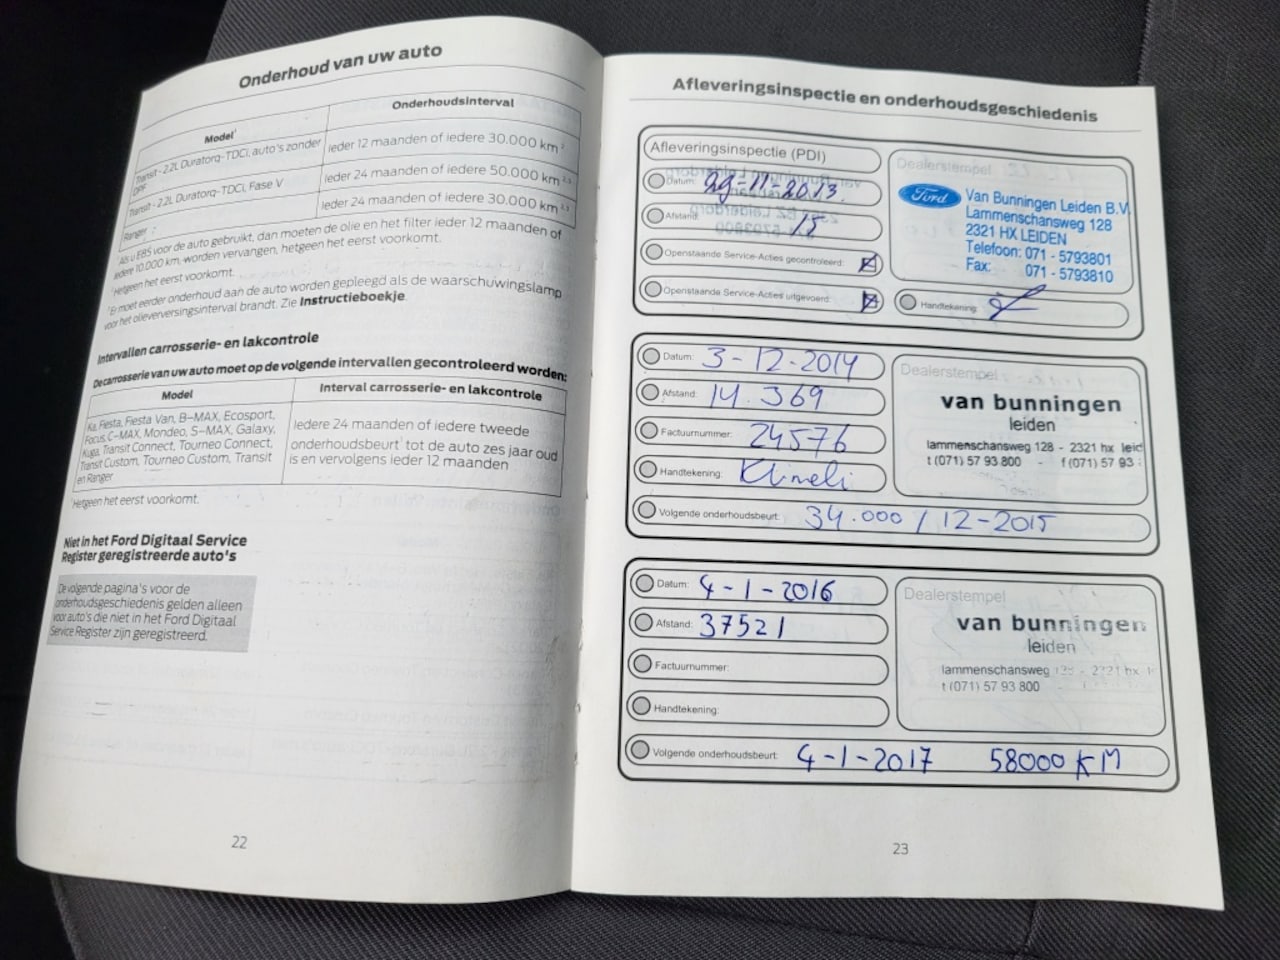 Onderhoud van uw auto
Model¹ Onderhoudsinterval
Transit - 2.2L Duratorq-TDCi, auto's zonder DPF Ieder 12 maanden of iedere 30.000 km ²
Transit - 2.2L Duratorq-TDCi, Fase V Ieder 24 maanden of iedere 50.000 km ²,³
Ranger Ieder 24 maanden of iedere 30.000 km ²,³
¹ Als u E85 voor de auto gebruikt, dan moeten de olie en het filter ieder 12 maanden of
iedere 10.000 km. worden vervangen, hetgeen het eerst voorkomt.
² Hetgeen het eerst voorkomt.
³ Er moet eerder onderhoud aan de auto worden gepleegd als de waarschuwingslamp
voor het olieverversingsinterval brandt. Zie Instructieboekje.
Intervallen carrosserie- en lakcontrole
De carrosserie van uw auto moet op de volgende intervallen gecontroleerd worden:
Model Interval carrosserie- en lakcontrole
Ka, Fiesta, Fiesta Van, B-MAX, Ecosport,
Focus, C-MAX, Mondeo, S-MAX, Galaxy,
Kuga, Transit Connect, Tourneo Connect,
Transit Custom, Tourneo Custom, Transit
en Ranger
Iedere 24 maanden of iedere tweede
onderhoudsbeurt¹ tot de auto zes jaar oud
is en vervolgens ieder 12 maanden
¹ Hetgeen het eerst voorkomt.
Niet in het Ford Digitaal Service
Register geregistreerde auto's
De volgende pagina's voor de
onderhoudsgeschiedenis gelden alleen
voor auto's die niet in het Ford Digitaal
Service Register zijn geregistreerd.
22
Afleveringsinspectie en onderhoudsgeschiedenis
Afleveringsinspectie (PDI)
Datum: 29-11-2013.
Afstand: 15
Openstaande Service-Acties gecontroleerd:
Openstaande Service-Acties uitgevoerd:
Dealerstempel
Ford
Van Bunningen Leiden B.V.
Lammenschansweg 128
2321 HX LEIDEN
Telefoon: 071 - 5793801
Fax: 071 - 5793810
Handtekening:
Datum: 3-12-2014
Afstand: 14.369
Factuurnummer: 24576
Handtekening:
Dealerstempel
van bunningen
leiden
lammenschansweg 128 - 2321 hx leid
t (071) 57 93 800 - f (071) 57 93
Volgende onderhoudsbeurt: 34.000 / 12-2015
Datum: 4-1-2016
Afstand: 37521
Factuurnummer:
Handtekening:
Dealerstempel
van bunningen
leiden
lammenschansweg 128 - 2321 hx
t (071) 57 93 800 -
Volgende onderhoudsbeurt: 4-1-2017 58000 KM
23